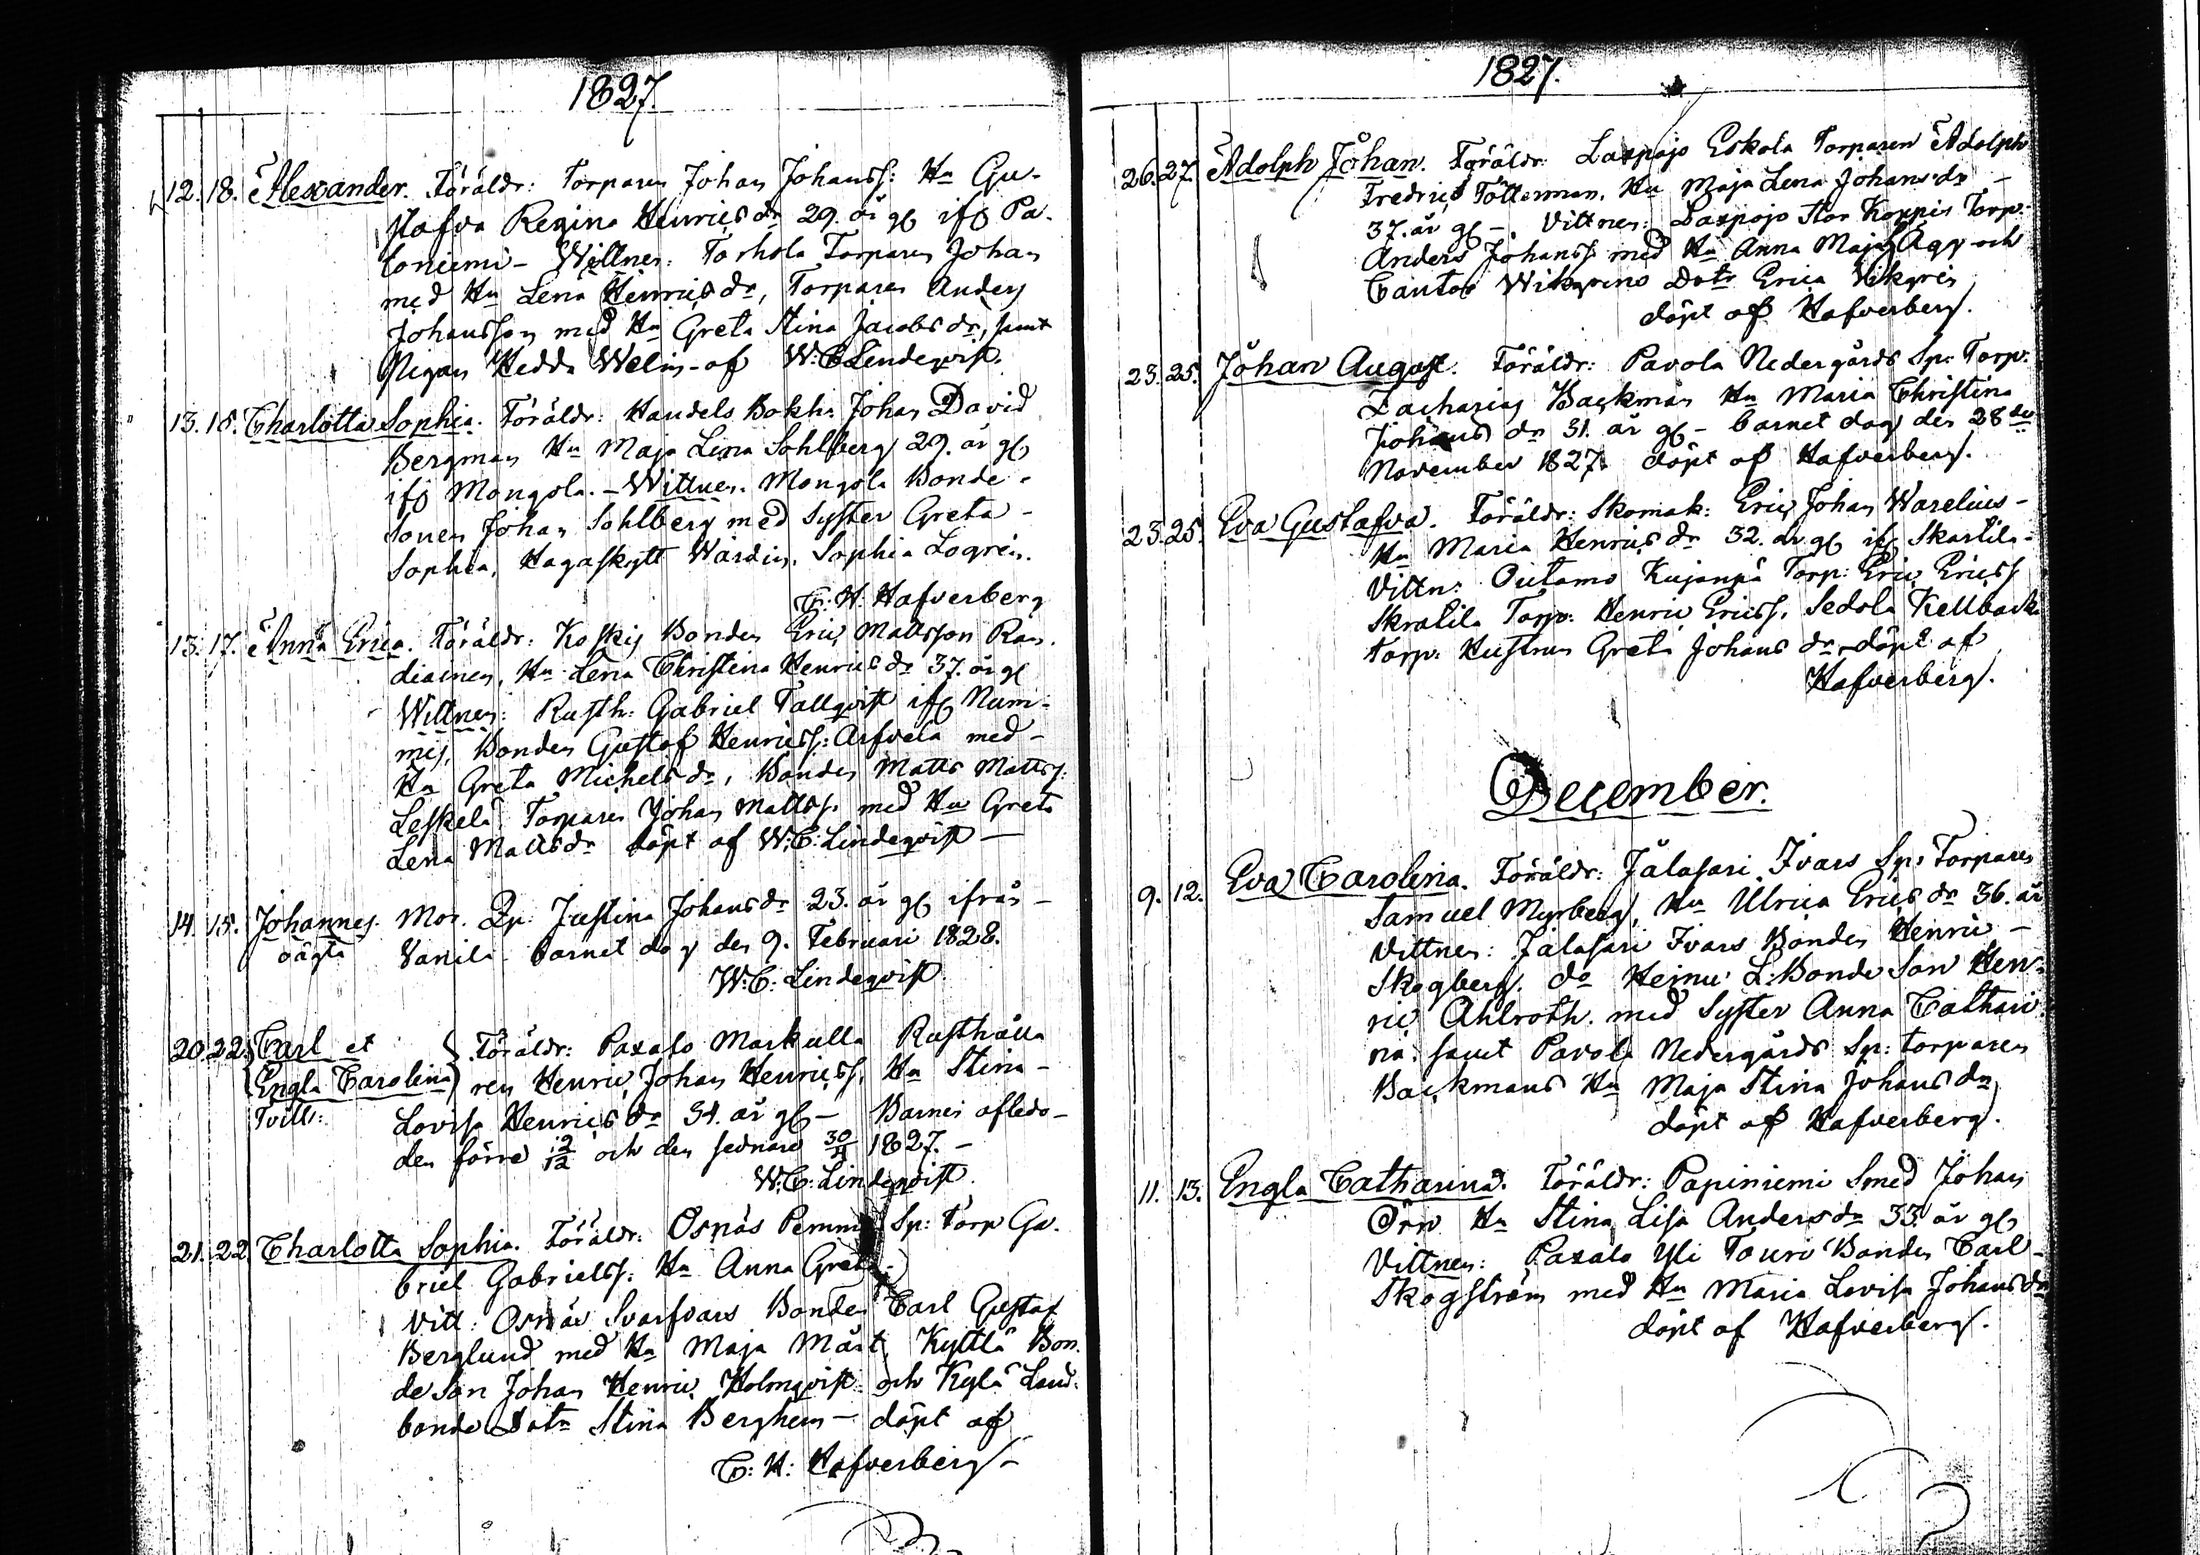 1827.
12. 18. Alexander. Föräldr: Torparen Johan Johanss: Hu Gu-
stafva Regina Henricsdr 29. år gl ifr Pa-
loniemi – Wittnen: Torhola Torparen Johan
med Hu Lena Henricsdr, Torparen Anders
Johansson med Hu Greta Stina Jacobsdr, samt
Pigan Hedda Welin – af W:C:Lindeqvist.
13. 18. Charlotta Sophia. Föräldr: Handels Bokh: Johan David
Bergman Hu Maja Lena Sohlberg 29. år gl
ifr Mongola. – Wittnen. Mongola Bonde-
sonen Johan Sohlberg med Syster Greta –
Sophia, Sophia Logrén.
C: H: Hafverberg
13. 17. Anna Erica. Föräldr: Koskis Bonden Eric Mattsson Ran-
diainen, Hu Lena Christina Henricsdr 37. år gl
Wittnen: Rusth: Gabriel Tallqvist ifr Num-
mis, Bonden Gustaf Henricss: Arfvela med –
Hu Greta Michelsdr, Bonden Matts Mattss:
Leskelä Torparen Johan Mattss. med Hu Greta
Lena Mattsdr döpt af W:C:Lindeqvist –
14. 15. Johannes. Mor. Pp. Justina Johansdr 23. år gl ifrån –
oägta Vanila. barnet dog den 9. Februari 1828.
W:C: Lindeqvist
20. 22. Carl et } Föräldr: Paxalo Markulla Rusthålla
Engla Carolina ren Henric Johan Henricss. Hu Stina –
Tvill: Lovisa Henricsdr 34. år gl – Barnen afledo –
den förre 12/12 och den sednare 30/11 1827. –
W:C: Lindeqvist.
21. 22. Charlotta Sophia. Föräldr: Osnäs Sp: Torp Ga-
briel Gabrielss: Hu Anna Greta
Vitt: Osnäs Svarfvars Bonden Carl Gustaf
Berglund med Hu Maja Kylä Bon-
de Son Johan Henric Holmqvist och Kylä Land-
bonde Dotr Stina Berghem – döpt af
C: H: Hafverberg –
1827.
26. 27. Adolph Johan. Föräldr: Laxpojo Eskola Torparen Adolph
Fredric Tötterman, Hu Maja Lena Johansdr –
37. år gl –. Vittnen: Laxpojo Stor Koppis Torp.
Anders Johanss med Hu Anna Maja och
Cantor Wikgrens Dotr Erica Wikgrén
döpt af Hafverberg.
23. 25. Johan August. Föräldr: Pavola Nedergårds Sp: Torp.
Zacharias Backman Hu Maria Christina
Johans dr 31. år gl – barnet dog den 28de
November 1827. döpt af Hafverberg.
23. 25. Eva Gustafva. Föräldr: Skomak: Eric Johan Warelius –
Hu Maria Henricsdr 32. år gl ifr Skartila –
Vittn: Outamo Kujanpä Torp: Eric Ericss
Skratila Torp: Henric Ericss. Sedola Kellbacka
Torp: Hustrun Greta Johans dr. döpt af
Hafverberg.
December.
9. 12. Eva Carolina. Föräldr: Jälasari Ivars Sp: Torparen
Samuel Myrberg, Hu Ulrica Ericsdr 36. år
Vittnen: Jälasari Ivars Bonden Henric –
Skogberg. do Heimu L:Bonde Son Hen-
ric Ahlroth. med Syster Anna Cathari
na. samt Pavola Nedergårds Sp: torparen
Backmans Hu Maja Stina Johansdr
döpt af Hafverberg.
11. 13. Engla Catharina. Föräldr: Papiniemi Smed Johan
Örn Hu Stina Lisa Andersdr 33. år gl
Vittnen: Paxalo Yli Touri Bonden Carl –
Skogström med Hu Maria Lovisa Johansdr
döpt af Hafverberg.